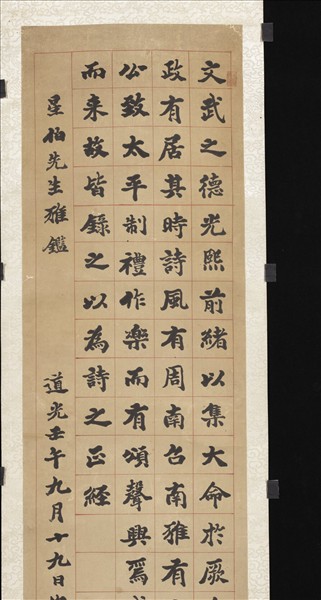 文武之德光熙前緒以集大命於厥
政有居其時詩風有周南召南雅有
公致太平制禮作楽而有頌聲興焉
而来故皆錄之以為詩之正經
星伯先生雅鑑
道光壬午九月十九日